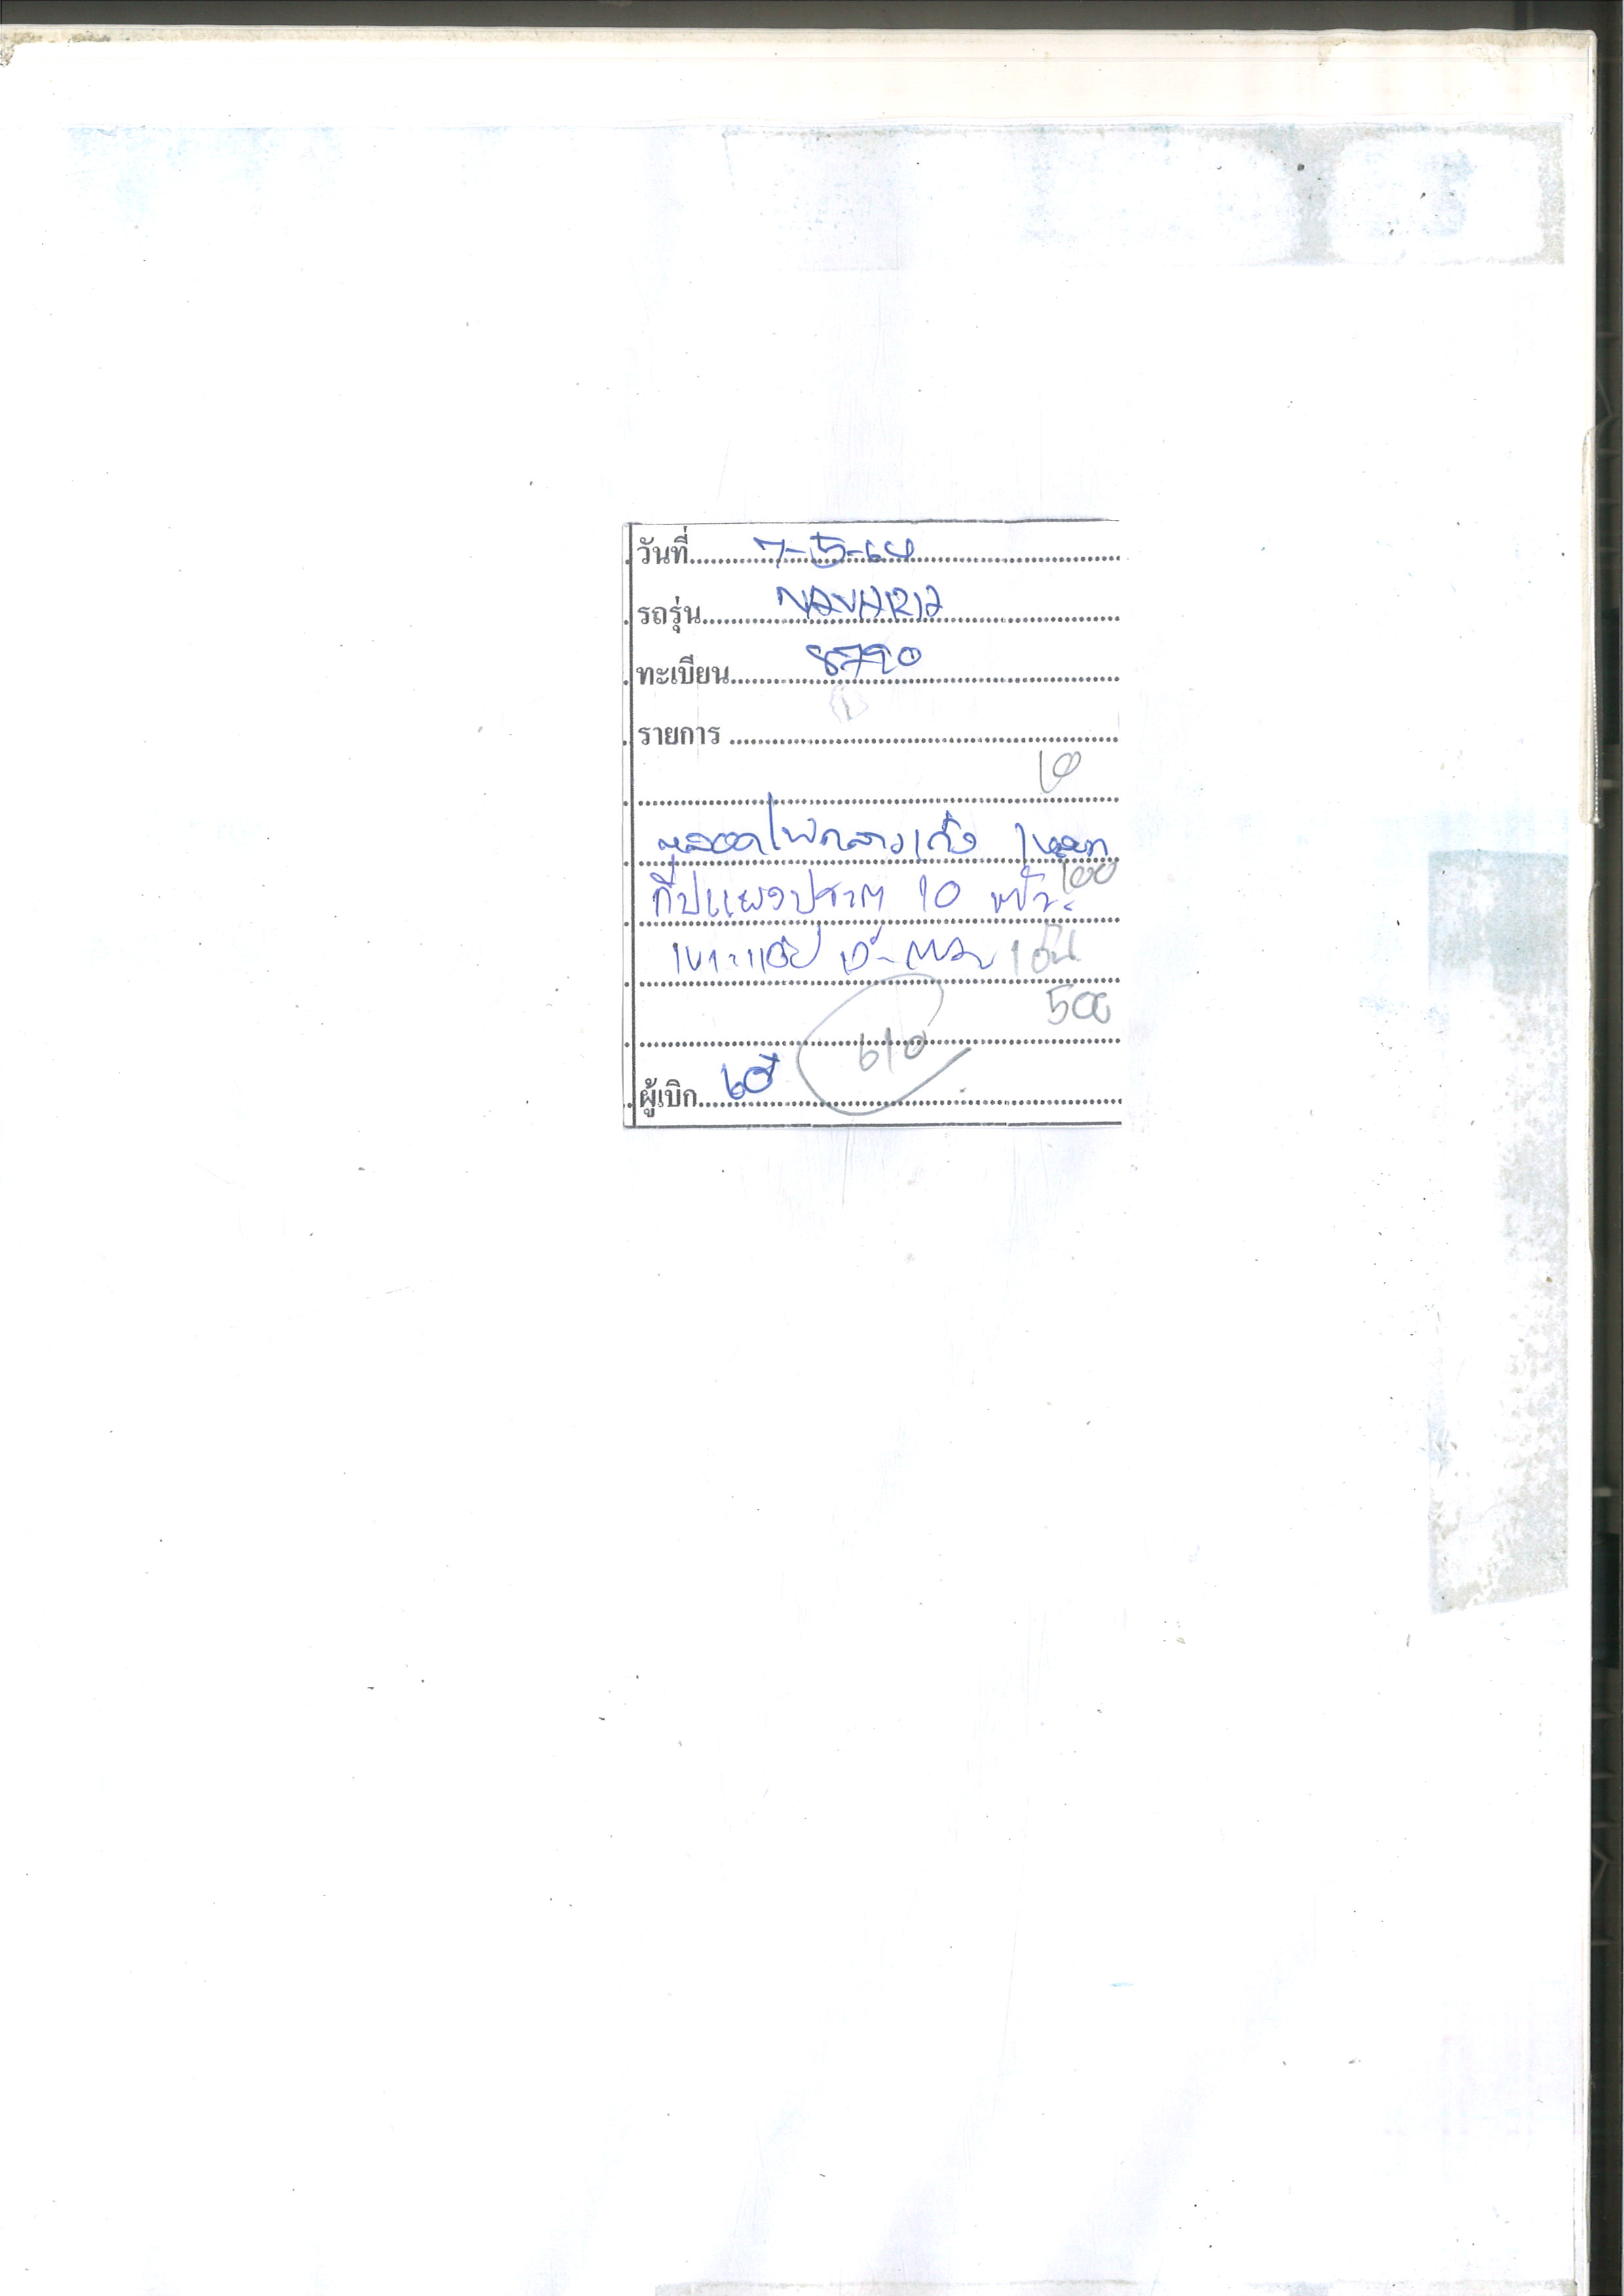 วันที่ 7-5-64
รถรุ่น NAVARA
ทะเบียน 8790
รายการ
10
หลอดไฟกลางเก๋ง 1 หลอด
100
กิ๊ปแผงประตู 10
เบาะแค๊ป 1 อัน
500
610
ผู้เบิก